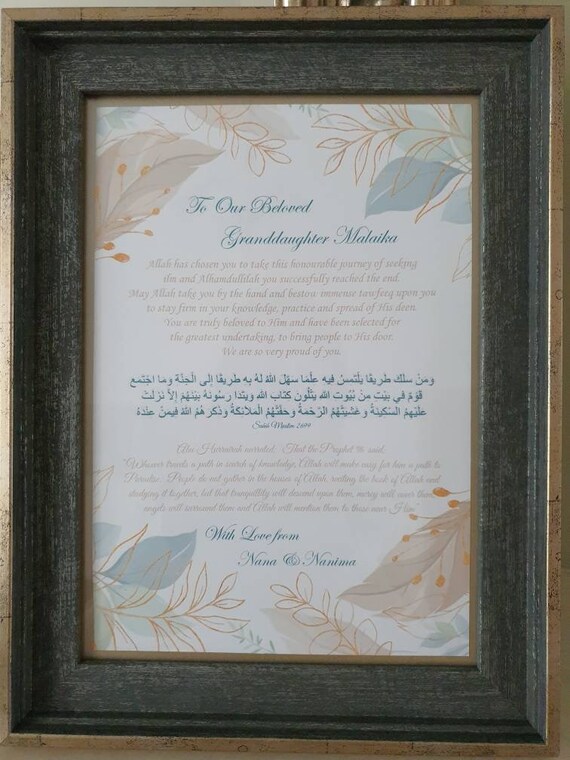 To Our Beloved
Granddaughter Malaika
Allah has chosen you to take this honourable journey of seeking
ilm and Alhamdullilah you successfully reached the end.
May Allah take you by the hand and bestow immense tawfeeq upon you
to stay firm in your knowledge, practice and spread of His deen.
You are truly beloved to Him and have been selected for
the greatest undertaking, to bring people to His door.
We are so very proud of you.
وَمَنْ سَلَكَ طَرِيقًا يَلْتَمِسُ فِيهِ عِلْمًا سَهَّلَ اللهُ لَهُ بِهِ طَرِيقًا إِلَى الْجَنَّةِ وَمَا اجْتَمَعَ
قَوْمٌ فِي بَيْتٍ مِنْ بُيُوتِ اللهِ يَتْلُونَ كِتَابَ اللهِ وَيَتَدَارَسُونَهُ بَيْنَهُمْ إِلاَّ نَزَلَتْ
عَلَيْهِمُ السَّكِينَةُ وَغَشِيَتْهُمُ الرَّحْمَةُ وَحَفَّتْهُمُ الْمَلاَئِكَةُ وَذَكَرَهُمُ اللهُ فِيمَنْ عِنْدَهُ
Sahih Muslim 2699
Abu Hurrairah narrated: That the Prophet ﷺ said:
"Whoever travels a path in search of knowledge, Allah will make easy for him a path to
Paradise. People do not gather in the houses of Allah, reciting the book of Allah and
studying it together, but that tranquility will descend upon them, mercy will cover them,
angels will surround them and Allah will mention them to those near Him.
With Love from
Nana & Nanima